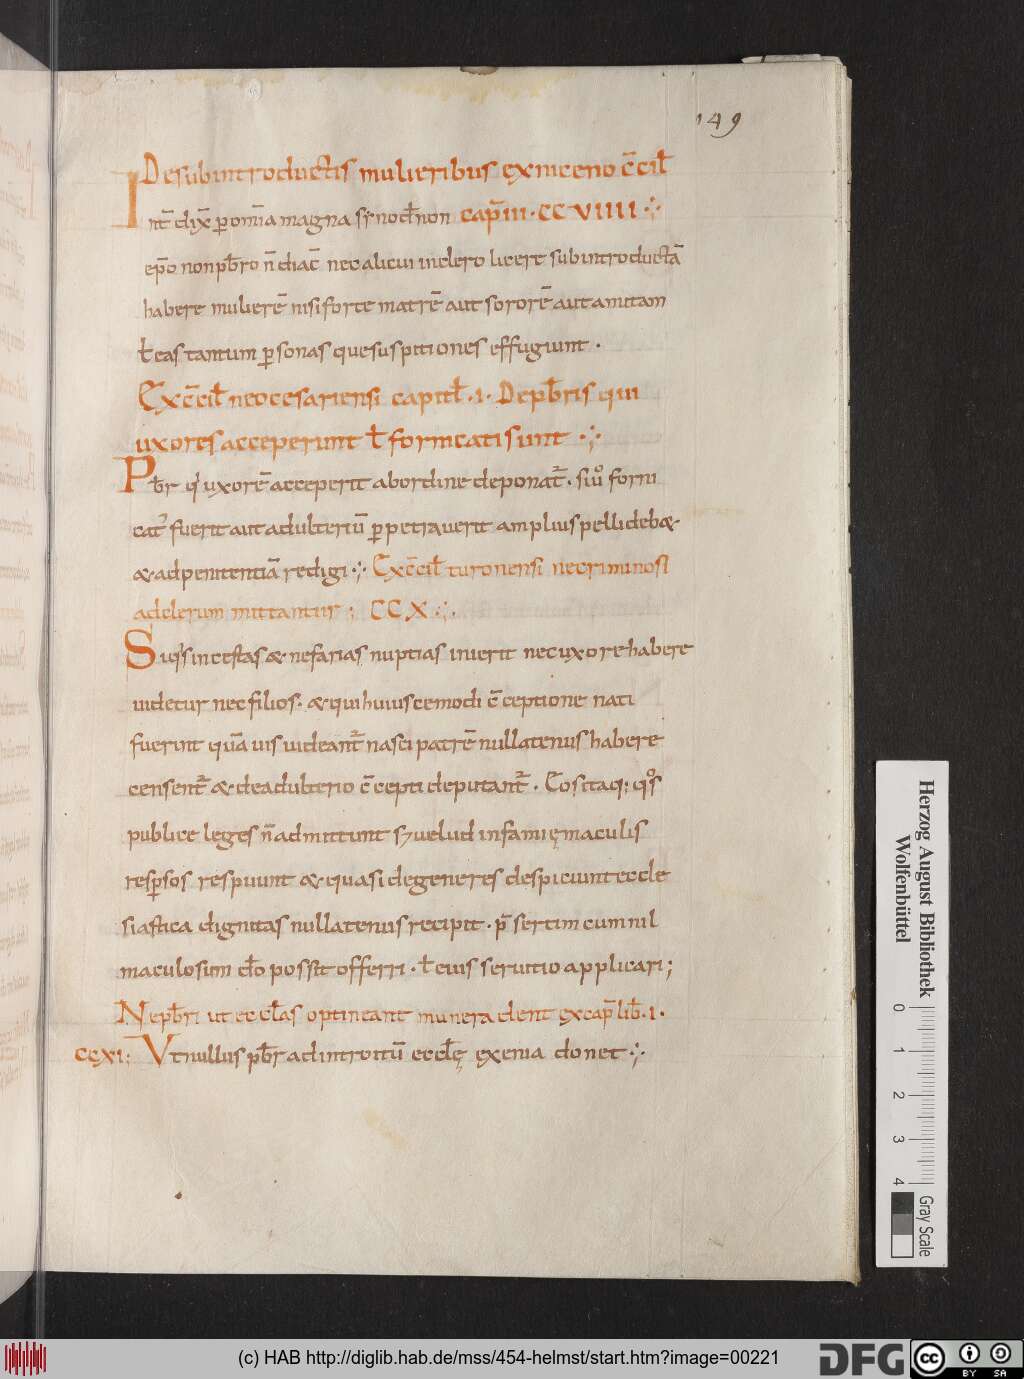 149
De subintroductis mulieribus ex niceno c̄cil̄
Int̄ dix̄ ꝑ om̄ia magna synod̄ non cap̄ iii · CCVIIII ·
ep̄o non pb̄ro n̄ diac̄ nec alicui in clero licere subintroductā
habere mulierē nisi forte matrē aut sororē aut amitam
ł eas tantum ꝑsonas que suspitiones effugiunt ·
Ex c̄cil̄ neocesariensi capitl̄ · i · De pb̄ris qui
uxores acceperunt ł fornicati sunt ·
Pb̄r q uxorē acceperit ab ordine deponat · siu forni
cat fuerit aut adulteriū ꝑpetrauerit amplius pelli deb&
& ad penitentiā redigi · Ex c̄cil̄ turonensi ne criminosi
ad clerum mittantur ; CCX ·
Si qs incestas & nefarias nuptias inierit nec uxore habere
uidetur nec filios · & qui huiuscemodi c̄ceptione nati
fuerint quā uis uideant nasci patrē nullatenus habere
censent & de adulterio c̄cepti deputant · Eos itaq; qs
publice leges n̄ admittunt s; uelud infamię maculis
resꝑsos respuunt & quasi degeneres despiciunt eccle
siastica dignitas nullatenus recipit · p̄sertim cum nil
maculosum d̄o possit offerri · ł eius seruitio applicari ;
Ne pb̄ri ut eccl̄as optineant munera dent ex cap̄ lib̄ · i ·
CCXI ; Ut nullus pb̄r ad introitū eccl̄ę exenia donet ·
Herzog August Bibliothek
Wolfenbüttel
0 1 2 3 4
Gray Scale
(c) HAB http://diglib.hab.de/mss/454-helmst/start.htm?image=00221
DFG
cc BY SA